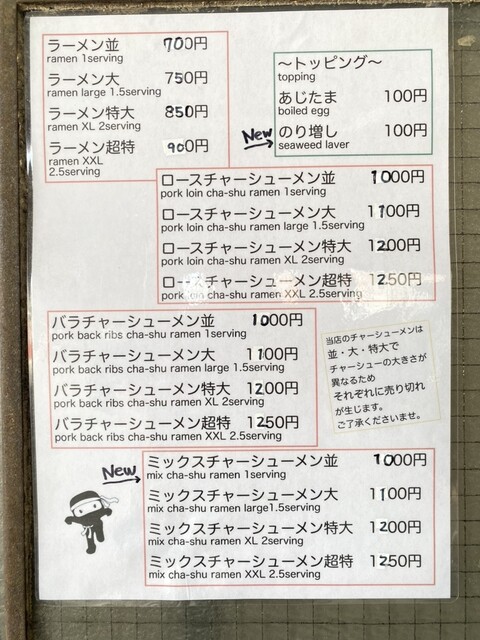 ラーメン並 700円
ramen 1serving
ラーメン大 750円
ramen large 1.5serving
ラーメン特大 850円
ramen XL 2serving
ラーメン超特 900円
ramen XXL
2.5serving
〜トッピング〜
topping
あじたま 100円
boiled egg
New
のり増し 100円
seaweed laver
ロースチャーシューメン並 1000円
pork loin cha-shu ramen 1serving
ロースチャーシューメン大 1100円
pork loin cha-shu ramen large 1.5serving
ロースチャーシューメン特大 1200円
pork loin cha-shu ramen XL 2serving
ロースチャーシューメン超特 1250円
pork loin cha-shu ramen XXL 2.5serving
バラチャーシューメン並 1000円
pork back ribs cha-shu ramen 1serving
バラチャーシューメン大 1100円
pork back ribs cha-shu ramen large 1.5serving
バラチャーシューメン特大 1200円
pork back ribs cha-shu ramen XL 2serving
バラチャーシューメン超特 1250円
pork back ribs cha-shu ramen XXL 2.5serving
当店のチャーシューメンは
並・大・特大で
チャーシューの大きさが
異なるため
それぞれに売り切れ
が生じます。
ご了承くださいませ。
New
ミックスチャーシューメン並 1000円
mix cha-shu ramen 1serving
ミックスチャーシューメン大 1100円
mix cha-shu ramen large1.5serving
ミックスチャーシューメン特大 1200円
mix cha-shu ramen XL 2serving
ミックスチャーシューメン超特 1250円
mix cha-shu ramen XXL 2.5serving